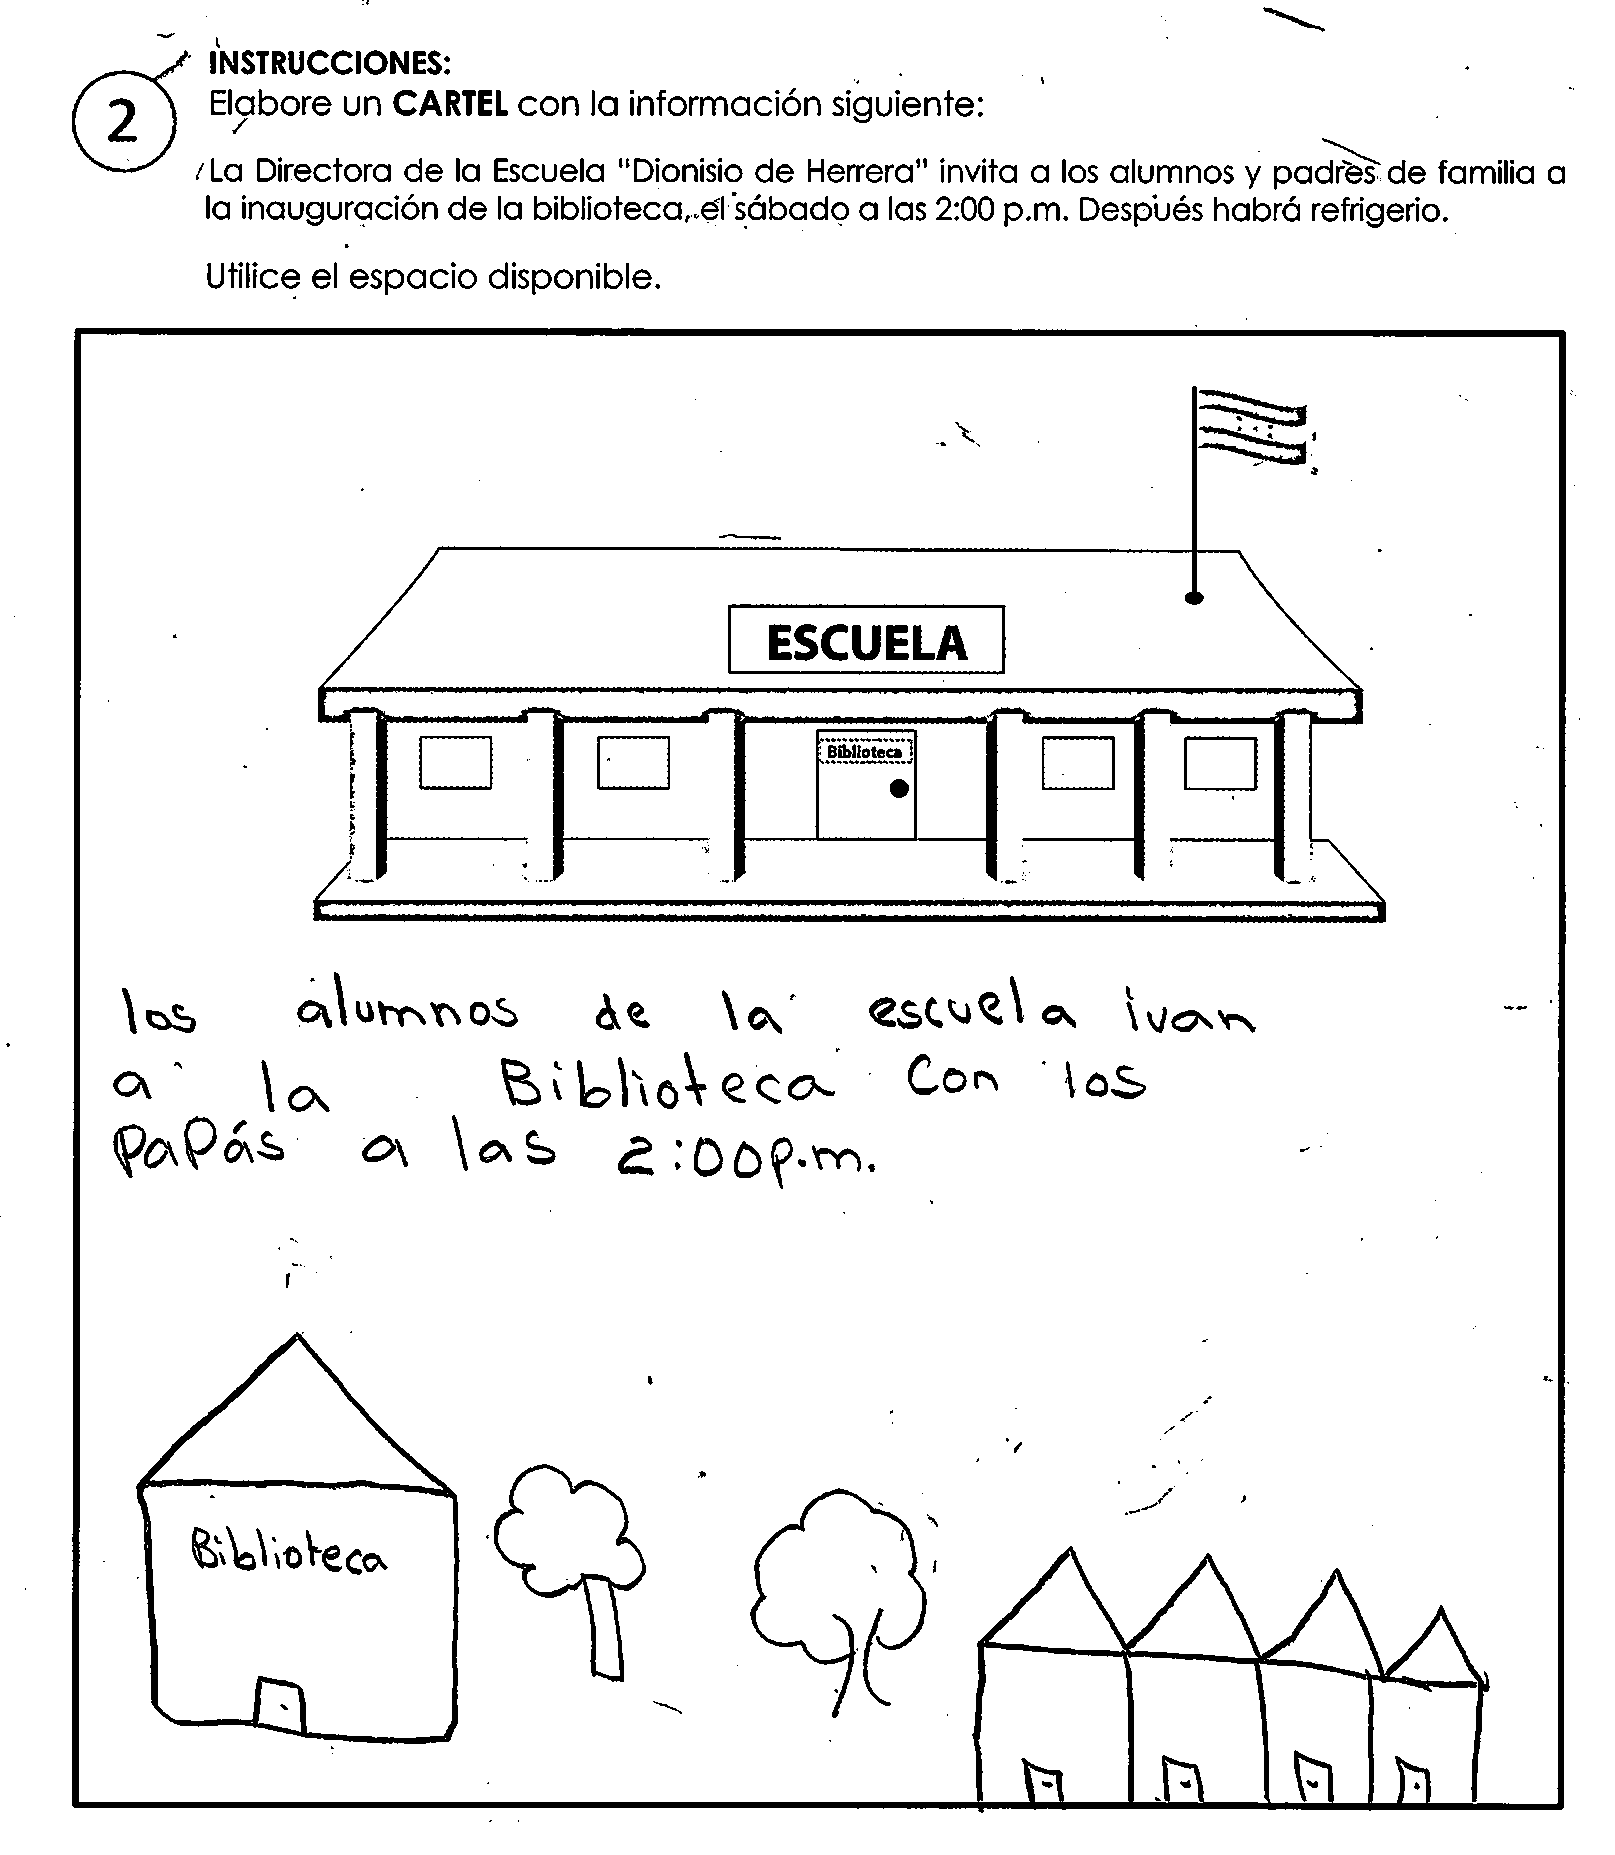 2
INSTRUCCIONES:
Elabore un CARTEL con la información siguiente:
La Directora de la Escuela "Dionisio de Herrera" invita a los alumnos y padres de familia a
la inauguración de la biblioteca, el sábado a las 2:00 p.m. Después habrá refrigerio.
Utilice el espacio disponible.
ESCUELA
Biblioteca
los alumnos de la escuela ivan
a la Biblioteca Con los
PaPás a las 2:00p.m.
Biblioteca